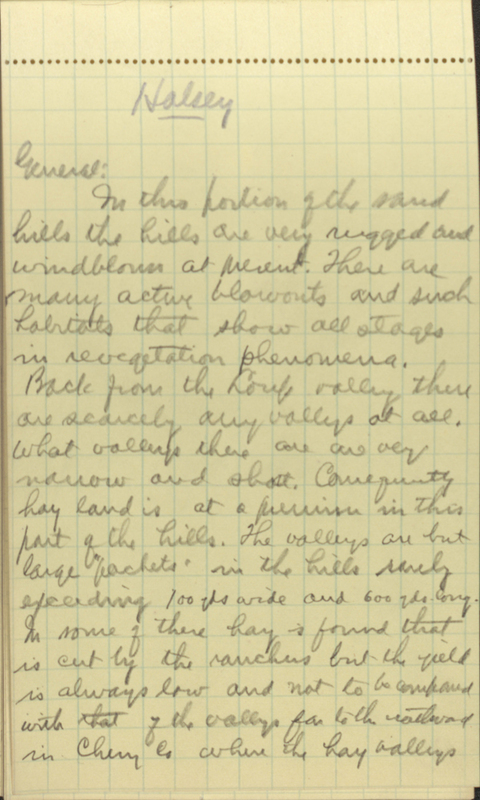 Halsey
General:
In this portion of the sand
hills the hills are very rugged and
windblown at present. There are
many active blowouts and such
habitats that show all stages
in revegetation phenomena.
Back from the Loup valley there
are scarcely any valleys at all.
What valleys there are are very
narrow and short. Consequently
hay land is at a premium in this
part of the hills. The valleys are but
large "pockets" in the hills rarely
exceeding 100 yds wide and 600 yds. long.
In some of these hay is found that
is cut by the ranchers but the yield
is always low and not to be compared
with that of the valleys far to the northward
in Cherry Co where the hay valleys